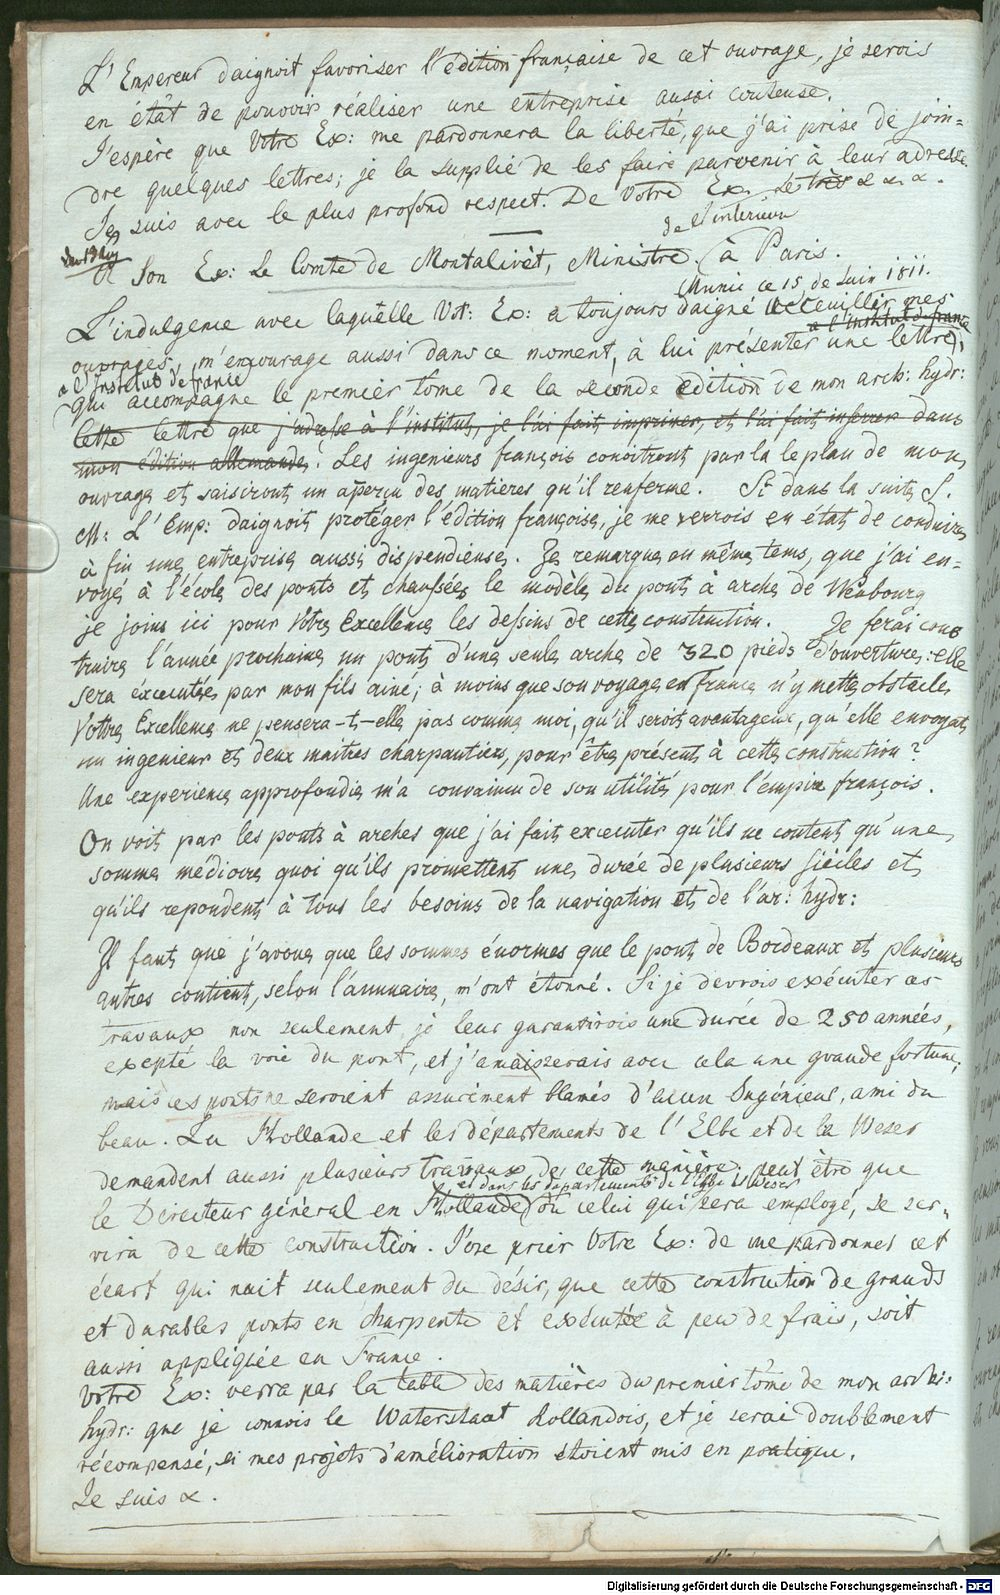 L'Empereur daignoit favoriser l'édition française de cet ouvrage, je serois
en état de pouvoir réaliser une entreprise aussi couteuse.
J'espère que Votre Ex: me pardonnera la liberté, que j'ai prise de join=
dre quelques lettres; je la supplie de les faire parvenir à leur adresse.
Je suis avec le plus profond respect. De Votre Ex. le très &. &. &.
de l'interieur
A Son Ex: Le Comte de Montalivèt, Ministre à Paris.
Munic ce 15 de Juin 1811.
L'indulgence avec laquelle Vot: Ex: a toujours daigné acceuillir mes
à l'Institut de france
ouvrages, m'encourage aussi dans ce moment, à lui présenter une lettre,
a l'Institut de france
qui accompagne le premier tome de la seconde edition de mon arch: hydr:
cette lettre que j'adresse à l'institut, je l'ai fait imprimer, et l'ai fait inserrer dans
mon édition allemande. Les ingenieurs françois conoitront par la le plan de mon
ouvrage et saisiront un aperçu des matieres qu'il renferme. Si dans la suite S.
M: L'Emp: daignoit protéger l'édition françoise, je me verrois en état de conduire
à fin une entreprise aussi dispendieuse. Je remarque en même tems, que j'ai en=
voyé à l'école des ponts et chaussées le modèle du pont à arche de Neubourg
je joins ici pour Votre Excellence les dessins de cette construction. Je ferai cons
truire l'année prochaine un pont d'une seule arche de 320 pieds d'ouverture: elle
sera éxecutée par mon fils ainé; à moins que son voyage en France n'y mette obstacle.
Vottre Excellence ne pensera-t-elle pas comme moi, qu'il seroit avantageux, qu'elle envoyat
un ingenieur et deux maitres charpantiers, pour être présent à cette construction?
Une experience approfondie m'a convaincu de son utilité pour l'empire françois.
On voit par les ponts à arches que j'ai fait executer qu'ils ne coutent qu'une
somme médiocre quoi qu'ils promettent une durée de plusieurs siècles et
qu'ils repondent à tous les besoins de la navigation et de l'ar: hydr:
Il faut que j'avoue que les sommes énormes que le pont de Bordeaux et plusieurs
autres coutent, selon l'annuaire, m'ont étonné. Si je devrois exécuter ces
travaux non seulement je leur garantirois une durée de 250 années,
excepté la voie du pont, et j'amaisserais avec cela une grande fortune,
mais ces ponts ne seroient assurément blamés d'aucun Ingénieur, ami du
beau. La Hollande et les départements de l'Elbe et de la Weser
demandent aussi plusieurs travaux de cette manière. peut être que
et dans les départements de l'Elbe et Weser
le Directeur général en Hollande ou celui qui sera employé, se ser=
vira de cette construction. J'ose prier Votre Ex: de me pardonner cet
écart qui nait seulement du désir, que cette construction de grands
et durables ponts en charpente et exécutée à peu de frais, soit
aussi appliquée en France.
Votre Ex: verra par la table des matières du premier tome de mon archi:
hydr: que je connois le Waterstaat Hollandois, et je serai doublement
récompensé, si mes projets d'amélioration étoient mis en pratique.
Je suis &.
Digitalisierung gefördert durch die Deutsche Forschungsgemeinschaft - DFG